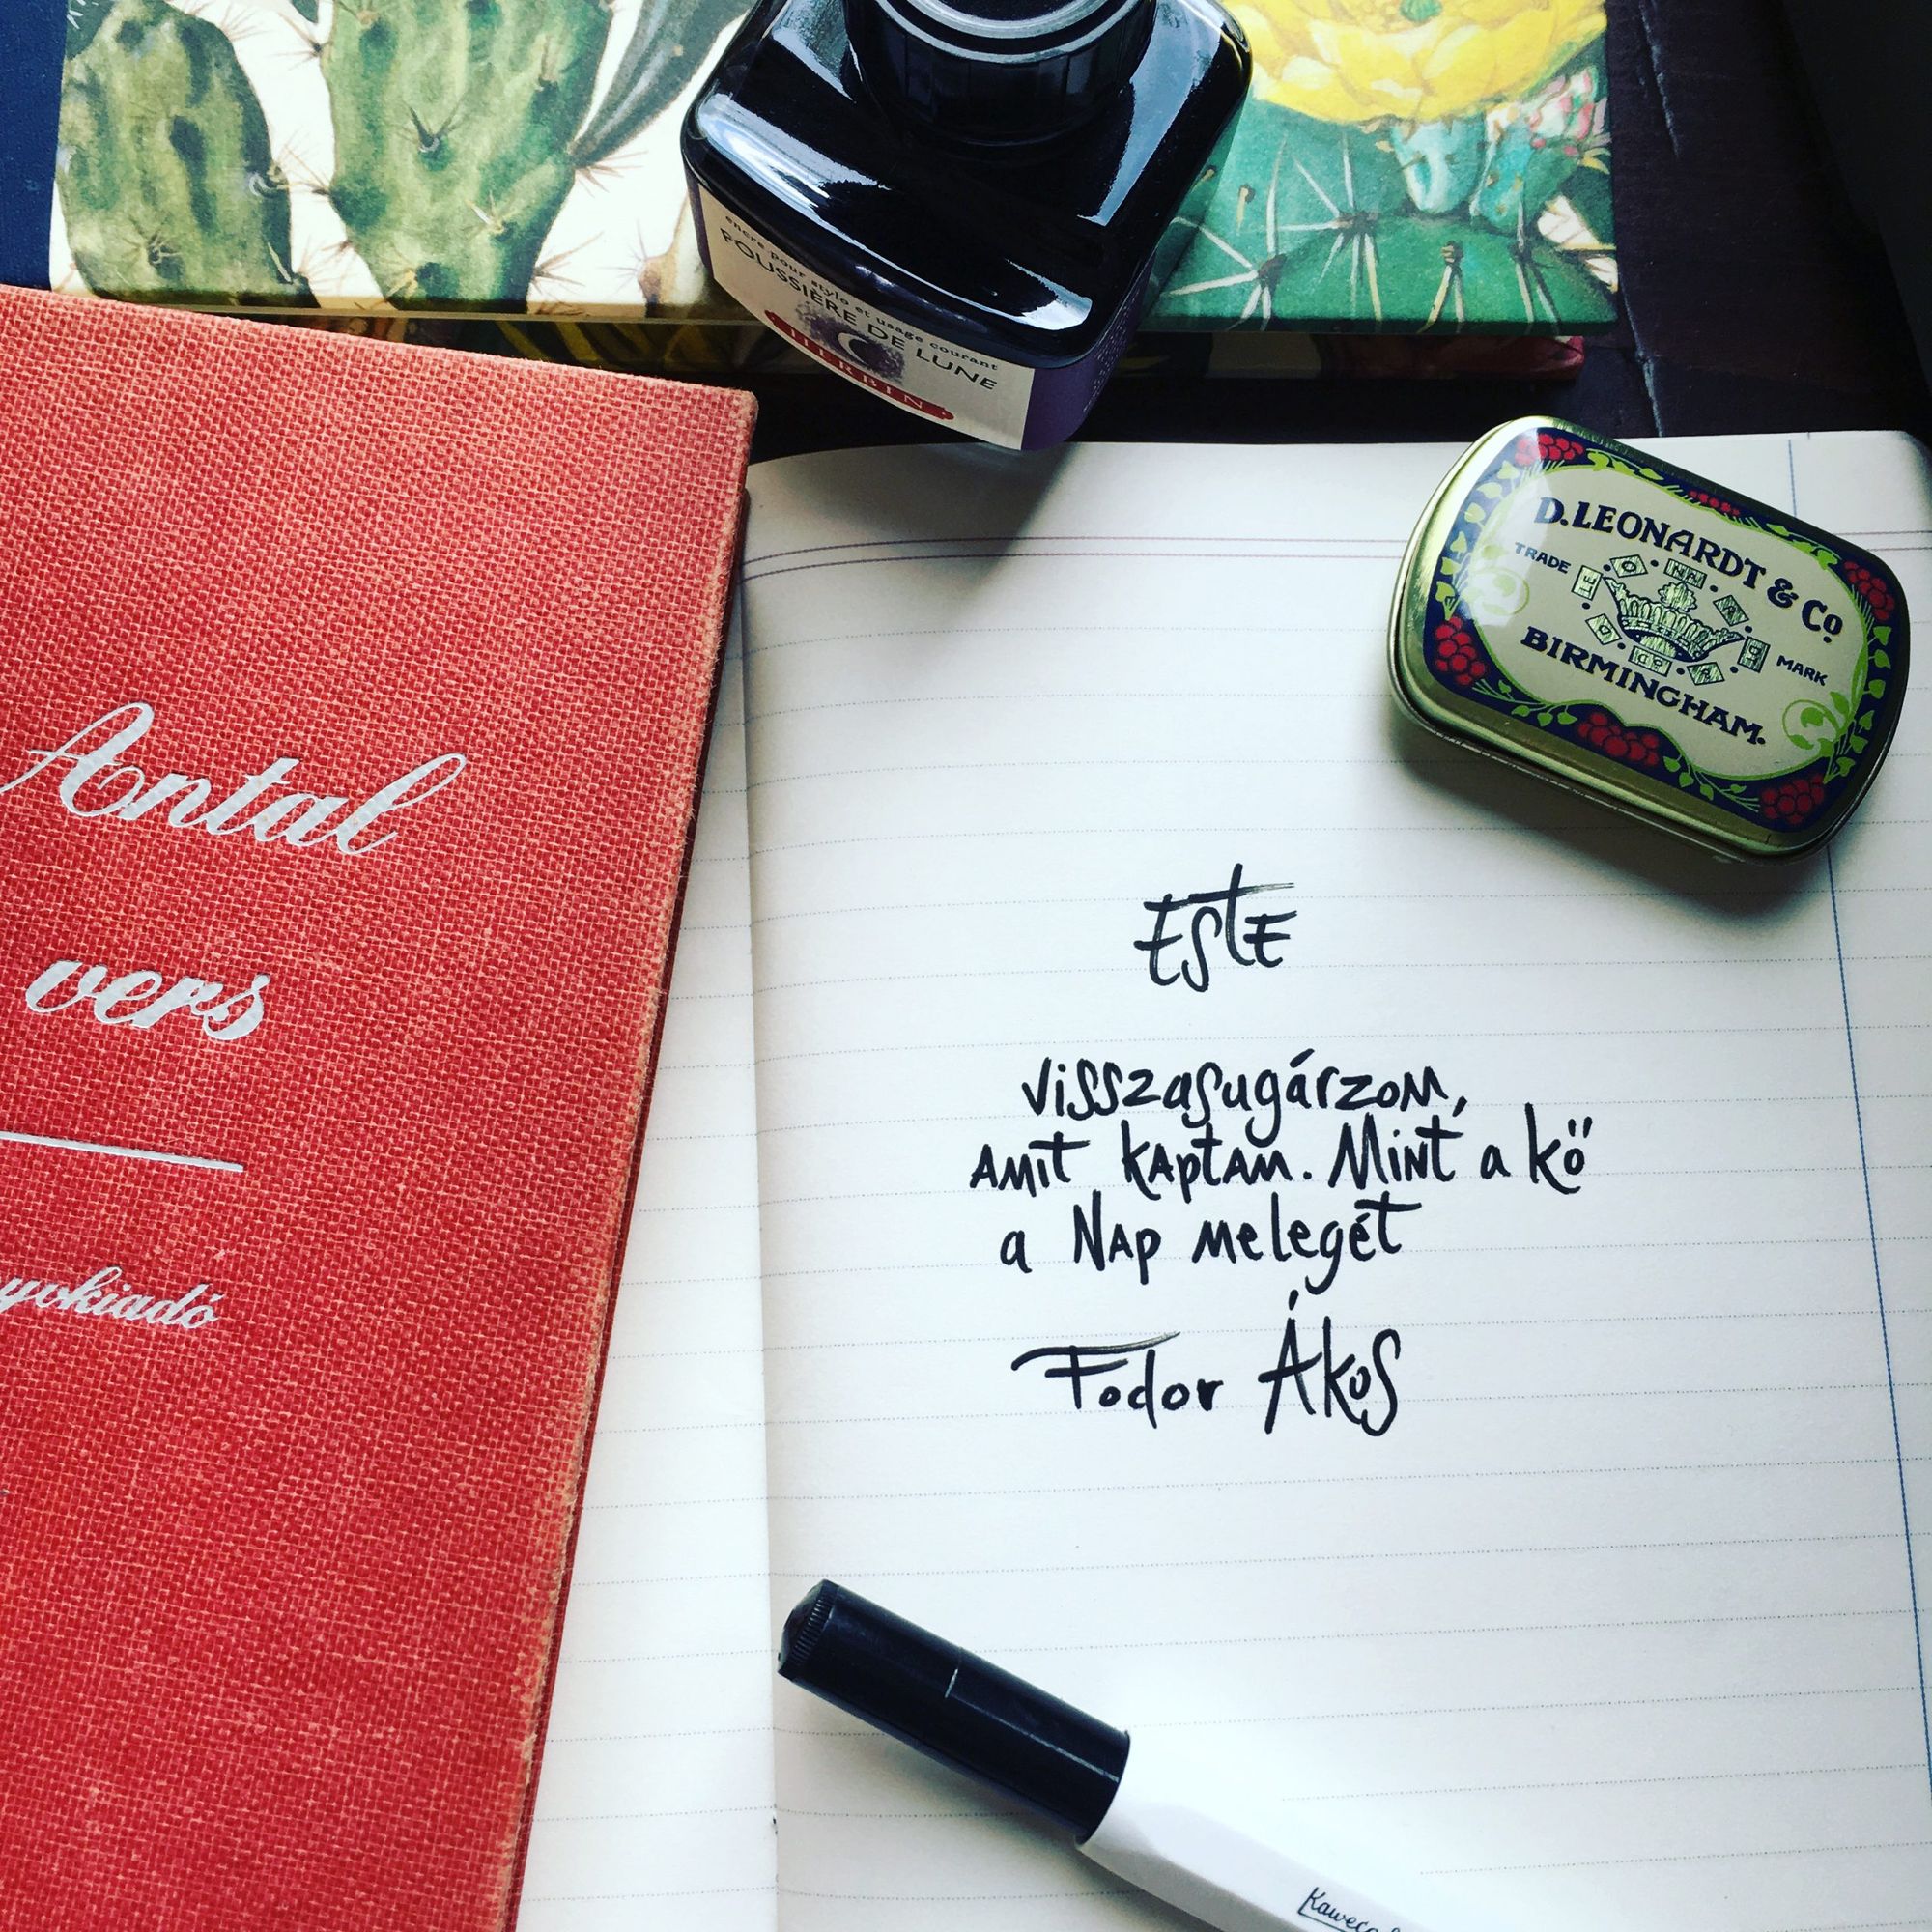 encre pour stylo et usage courant
POUSSIÈRE DE LUNE
HERBIN
D. LEONARDT & Co
TRADE MARK
BIRMINGHAM.
Antal
vers
yokiadó
Este
visszasugárzom,
amit kaptam. Mint a kő
a Nap melegét
Fodor Ákos
Kaweco